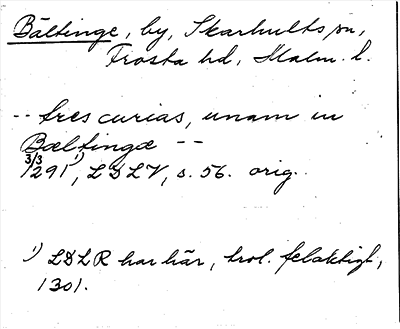 Bältinge, by, Skarhults sn,
Frosta hd, Malm. l.
-- tres curias, unam in
Bæltingæ --
3/3 1291¹⁾, LDLV, s. 56. orig.
¹⁾ LDLR har här, trol. felaktigt,
1301.